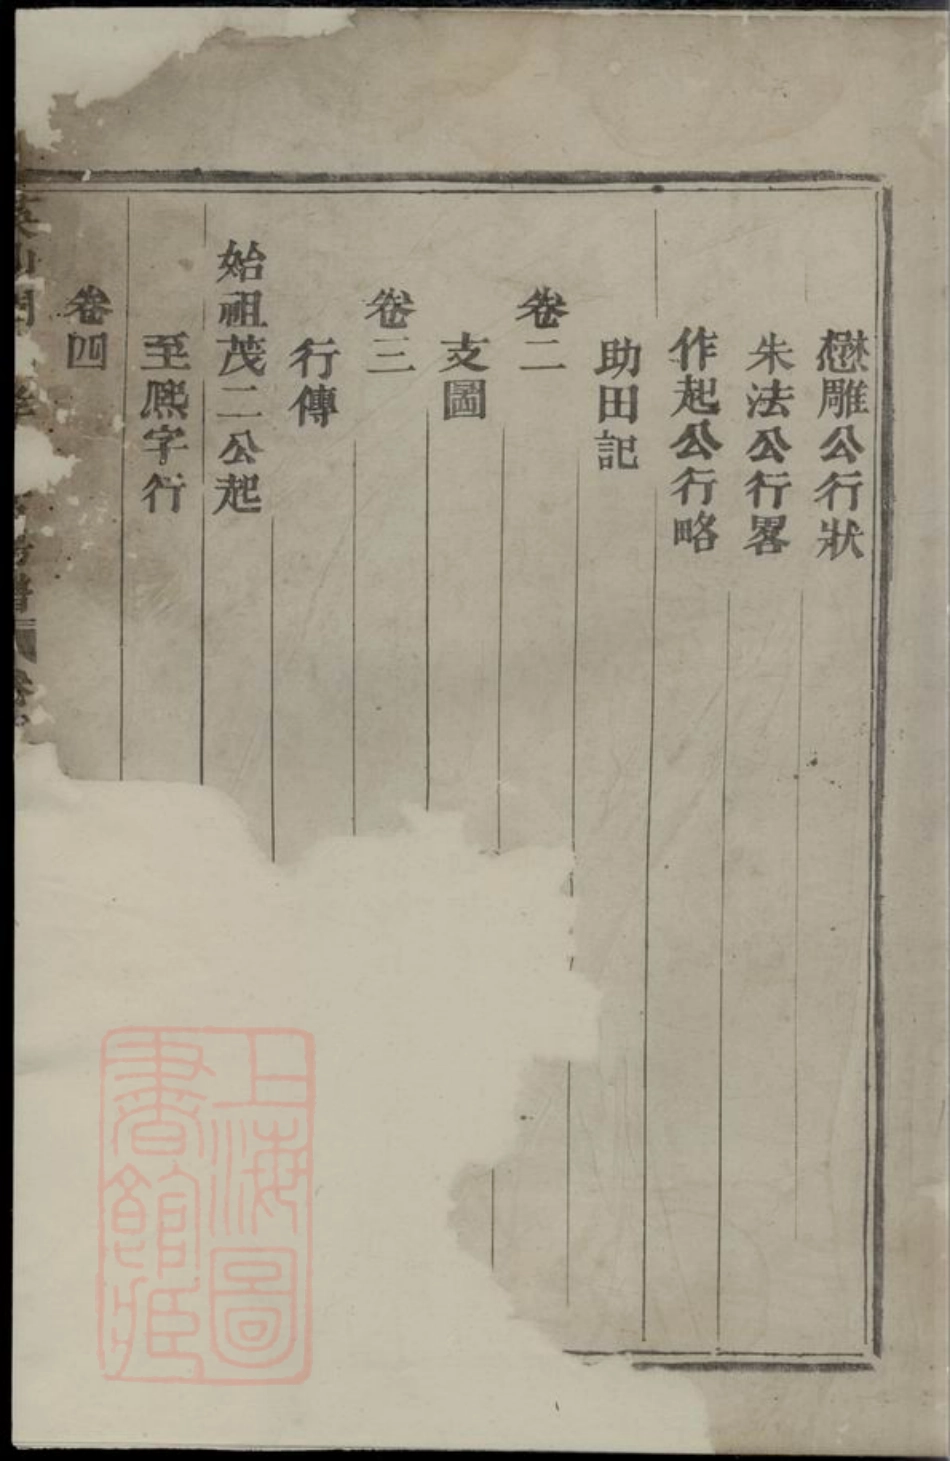 懋雕公行狀
朱法公行畧
作起公行略
助田記
卷二
支圖
卷三
行傳
始祖茂二公起
至熈字行
卷四
上海圖
書館藏